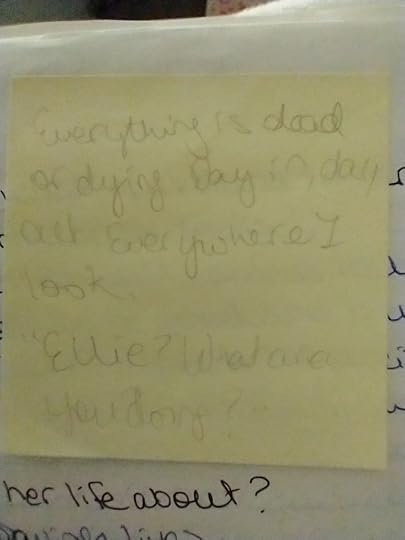 Everything is dead
or dying. Day in, day
out everywhere I
look.
"Ellie? What are
you doing?"
her life about?